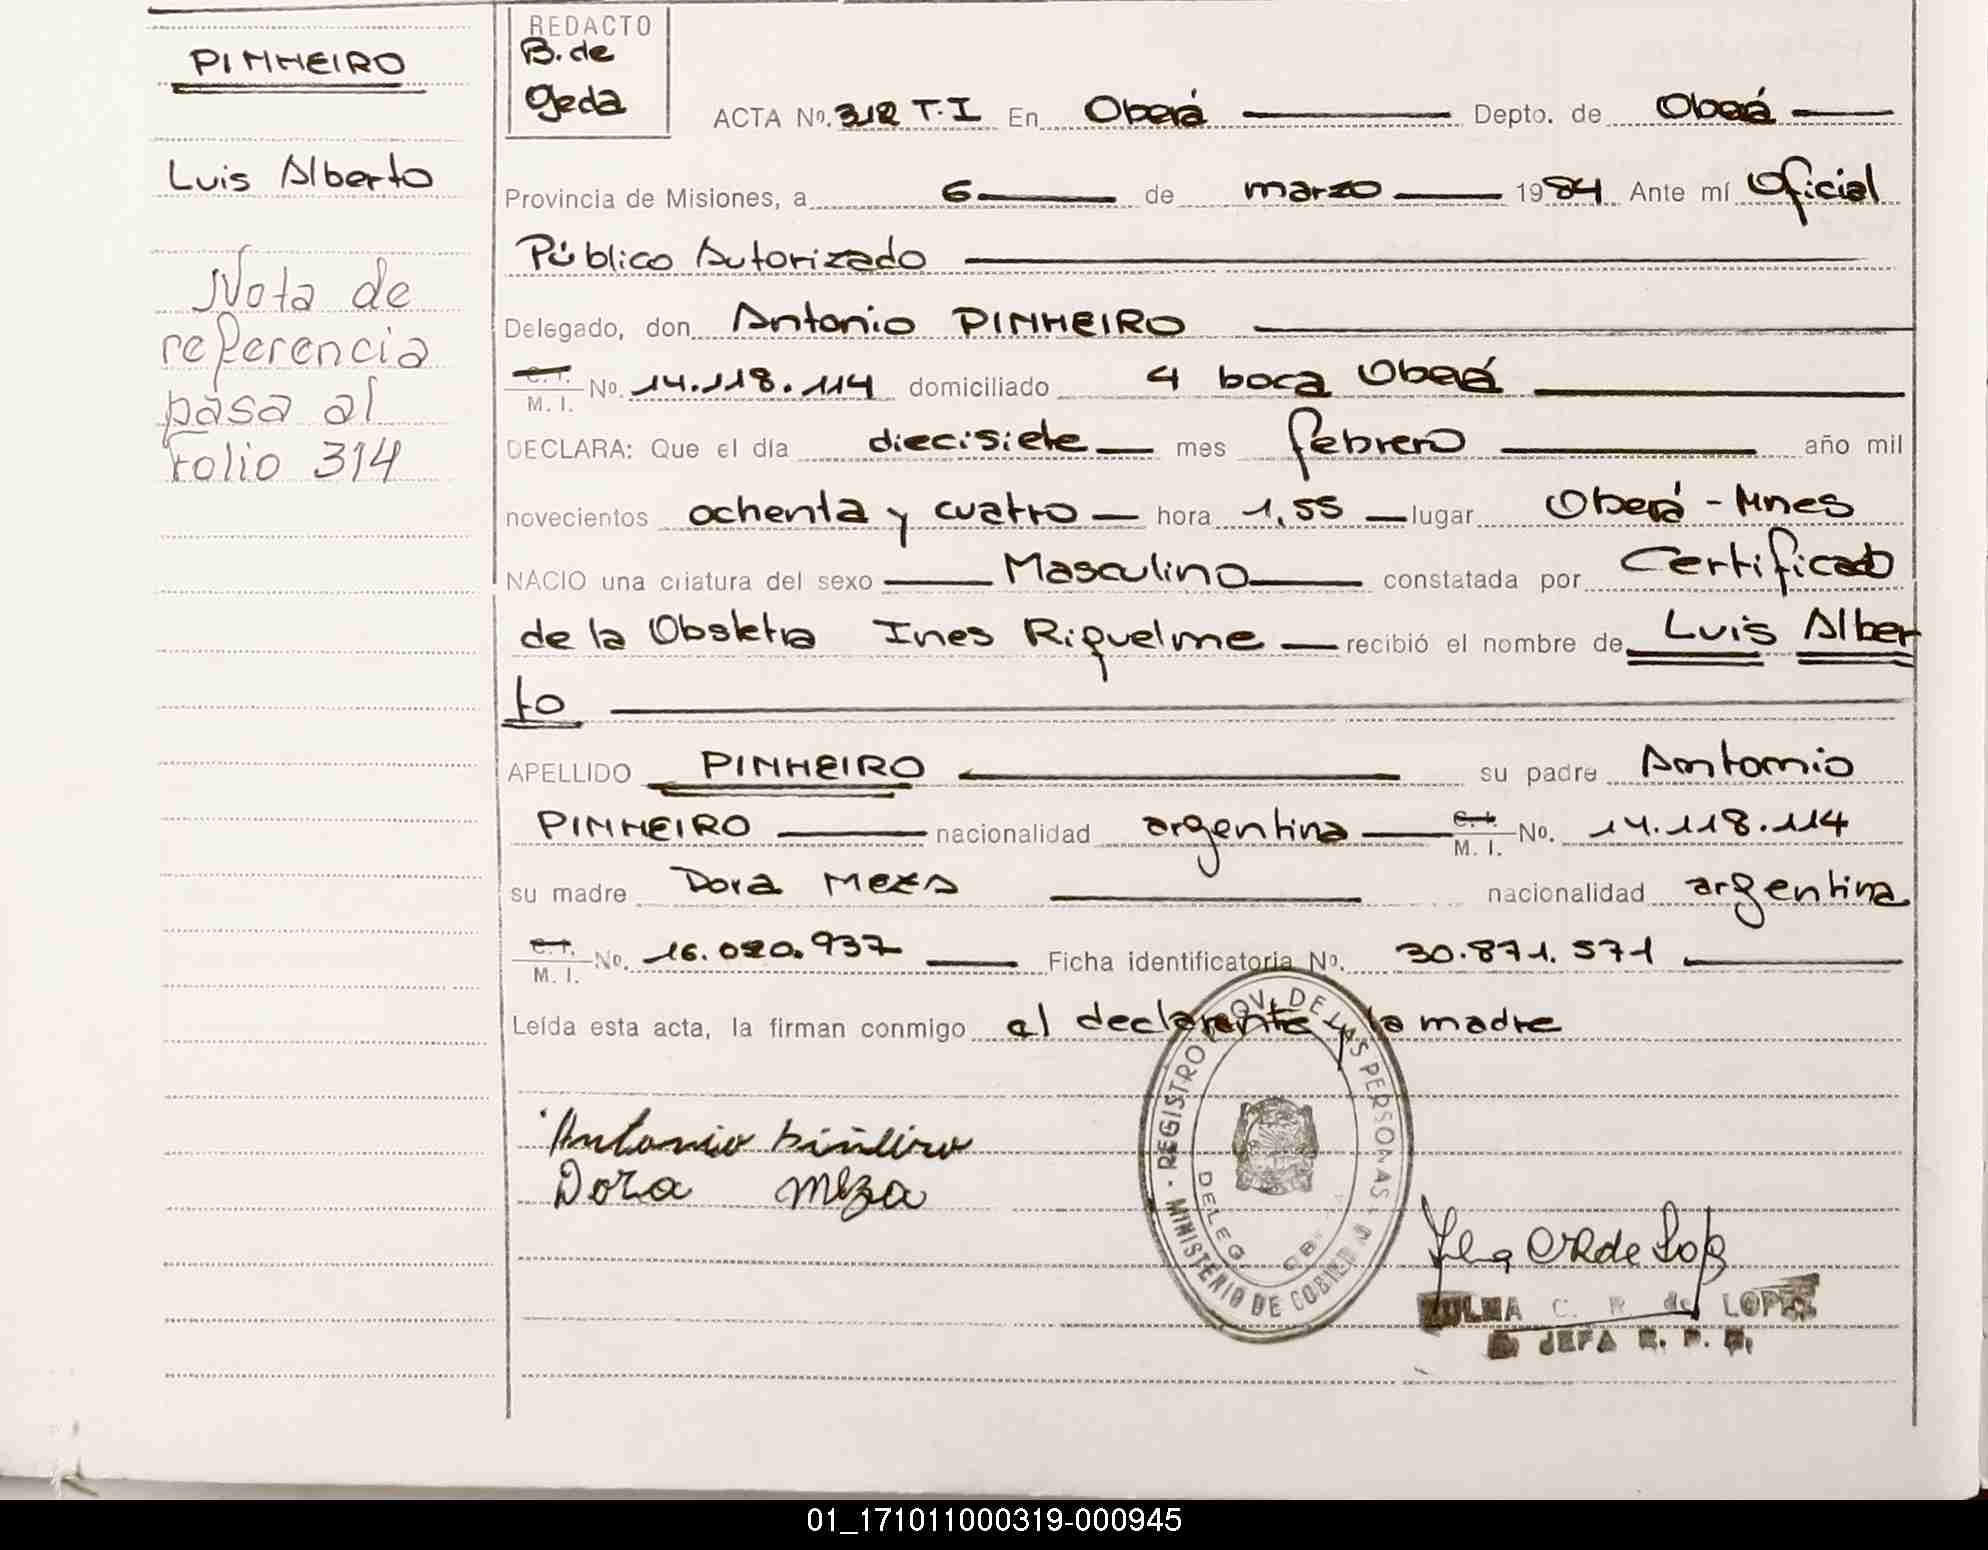 PINHEIRO
Luis Alberto
Nota de
referencia
pasa al
folio 314
REDACTO
B. de
Geda
ACTA Nº. 312 T. I En Oberá Depto. de Oberá
Provincia de Misiones, a 6 de marzo 1984 Ante mí Oficial
Público Autorizado
Delegado, don Antonio PINHEIRO
C. I. M. I. No. 14.118.114 domiciliado 4 boca Oberá
DECLARA: Que el día diecisiete mes febrero año mil
novecientos ochenta y cuatro hora 1,55 lugar Oberá - Mnes
NACIO una criatura del sexo Masculino constatada por Certificado
de la Obstetra Ines Riquelme recibió el nombre de Luis Alber
to
APELLIDO PINHEIRO su padre Antonio
PINHEIRO nacionalidad argentina C. I. M. I. No. 14.118.114
su madre Dora MEZA nacionalidad argentina
C. I. M. I. No. 16.020.937 Ficha identificatoria No. 30.871.571
Leída esta acta, la firman conmigo el declarante y la madre
Antonio Piñeiro
Dora Meza
REGISTRO PROV. DE LAS PERSONAS
MINISTERIO DE GOBIERNO
DELEG.
ZULMA C. R. de LOPEZ
JEFA R. P. P.
01_171011000319-000945